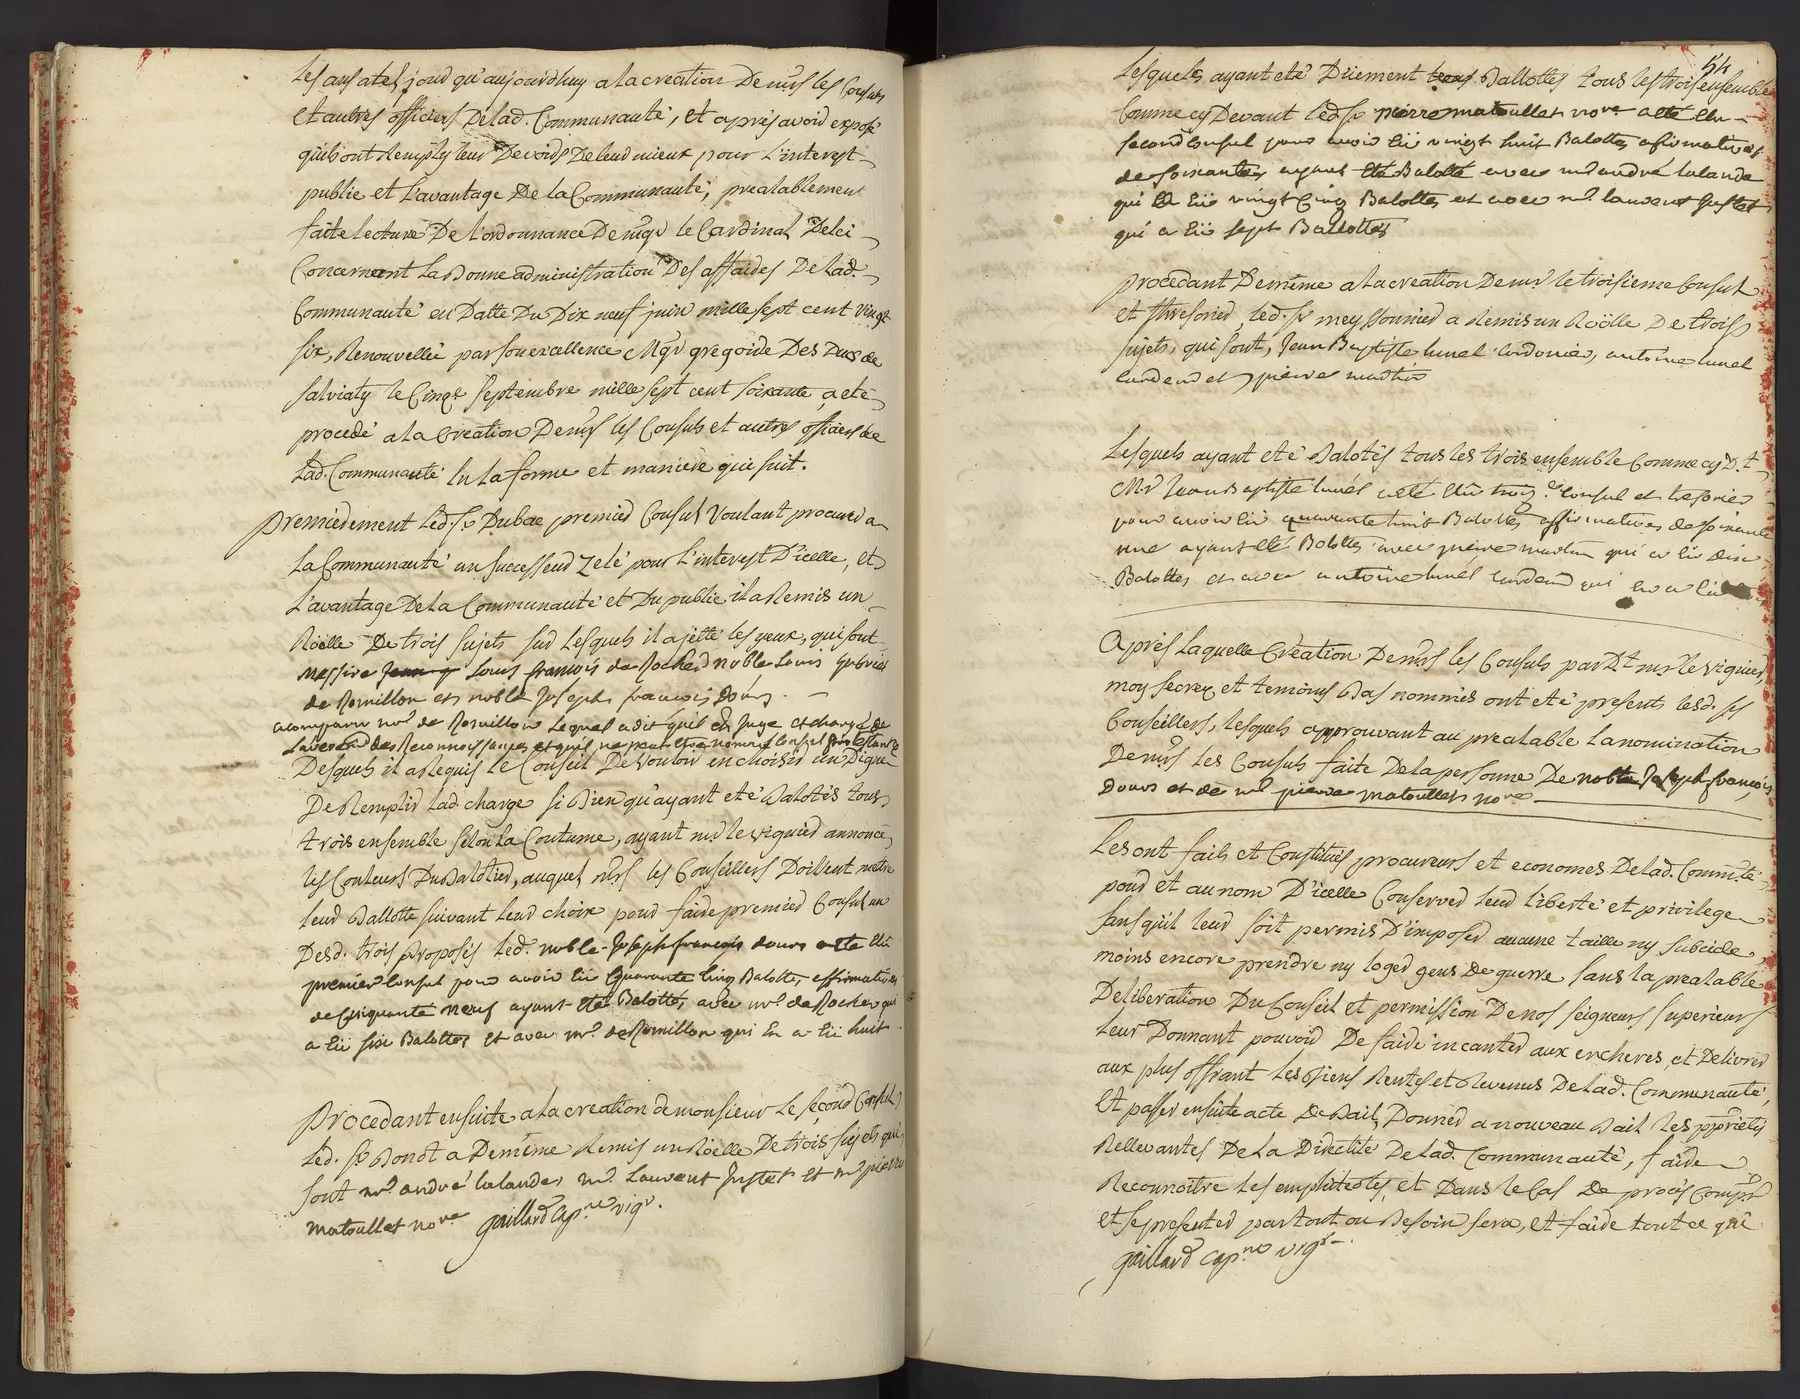 les ans atel jour qu'aujourdhuy a la creation De mrs les Consuls
Et autres officiers De lad. Communauté, et apres avoir exposé
qu'ils ont Remply leur Devoir De leur mieux pour L'interest
public et L'avantage De la Communauté, prealablement
faite lecture De L'ordonnance De mgr le Cardinal Delci
Concernent La Bonne administration Des affaires De lad.
Communauté en Datte Du Dix neuf juin mille sept cent vingt
six, Renouvellée par son excellence Mgr gregoire Des Ducs de
salviaty le Cinq septembre mille sept cent soixante, a eté
procedé a la Creation De mrs les Consuls et autres officiers de
Lad. Communauté En la forme et maniere qui suit.
Premierement Led. sr Dubae premier Consul Voulant procurer a
La Communauté un successeur Zelé pour L'interest D'icelle, et
L'avantage De la Communauté et Du public il a Remis un
Röolle De trois sujets sur lesquels il a jetté les yeux, qui sont
Messire Louis françois de Rocher noble Louis gabriel
de Romillon et noble Joseph françois Dours. —
a comparu mr. de Romillon Lequel a dit qu'il est Juge et chargé de
Des Reconnoissances et qu'il ne peut etre nommé Consul
Desquels il a Requis le Conseil De Vouloir en choisir un Digne
De Remplir Lad. charge si Bien qu'ayant eté Balotés tous
trois ensemble selon la Coutume, ayant mr le viguier annoncé
les Couleurs Du Balotier, auquel mrs les Conseillers Doivent metre
leur Ballotte suivant leur choix pour faire premier Consul un
Desd. trois proposés led. noble Joseph françois dours a eté Elû
premier Consul pour avoir Eü quarante Cinq Balottes affirmatives
de Cinquante neuf ayant eté Balottés avec mr. de Rocher qui
a Eü six Balottes et avec Mr. de Romillon qui En a Eü huit
Procedant ensuite a la creation de monsieur Le second Consul
Led. sr Bonot a De même Remis un Röelle De trois sujets qui
sont mr. andré lalande, mr. Laurent Justet et mr. pierre
Matoullet nore. gaillard Capne vigr.
54
Lesquels ayant eté Düement Ballottés tous les trois ensemble
Comme cy Devant led. sr pierre matoullet nore. a eté Elu
second Consul pour avoir Eü vingt huit Balottes afirmatives
de soixante, ayant été Baloté avec mr. andré lalande
qui a Eü vingt Cinq Balottes et avec mr. laurent Justet
qui a Eü sept Ballottes
Procedant De même a la creation De mr le troisieme Consul
et thresorier, led. sr meyssonnier a Remis un Röolle De trois
sujets, qui sont, Jean Baptiste lunel Cordonier, antoine lunel
Cardeur et pierre martin
Lesquels ayant eté Balotés tous les trois ensemble Comme cy D.t
Mr Jean Baptiste lunel a eté Elû troise. Consul et tresorier
pour avoir Eü quarante huit Balottes affirmatives de soixante
une ayant eté Balottés avec pierre martin qui a Eü dix
Balottes et avec antoine lunel Cardeur qui en a Eü
Après Laquelle Création De mrs les Consuls par D.t mr le viguier,
moy secre. et temoins Bas nommés ont eté presents lesd. srs
Conseillers, lesquels approuvant au prealable la nomination
De mrs les Consuls faite De la personne De noble Joseph françois
Dours et de mr. pierre matoullet nore.
Les ont faits et Constitués procureurs et economes De lad. Commté.
pour et au nom D'icelle Conserver leur liberté et privilege
sans qu'il leur soit permis D'imposer aucune taille ny subcide
moins encore prendre ny loger gens De guerre sans la prealable
Deliberation Du Conseil et permission De nos seigneurs superieurs
Leur Donnant pouvoir De faire incanter aux encheres, et Delivrer
aux plus offrant Les Biens Rentes et Revenus De lad. Communauté,
Et passer ensuite acte De Bail, Donner a nouveau Bail les ppriétés
Rellevantes De la Directité De lad. Communauté, faire
Reconnoitre Les emphiteotes, et Dans le Cas De procès Compr
et se presenter par tout ou Besoin sera, et faire tout ce qui
gaillard capne vigr